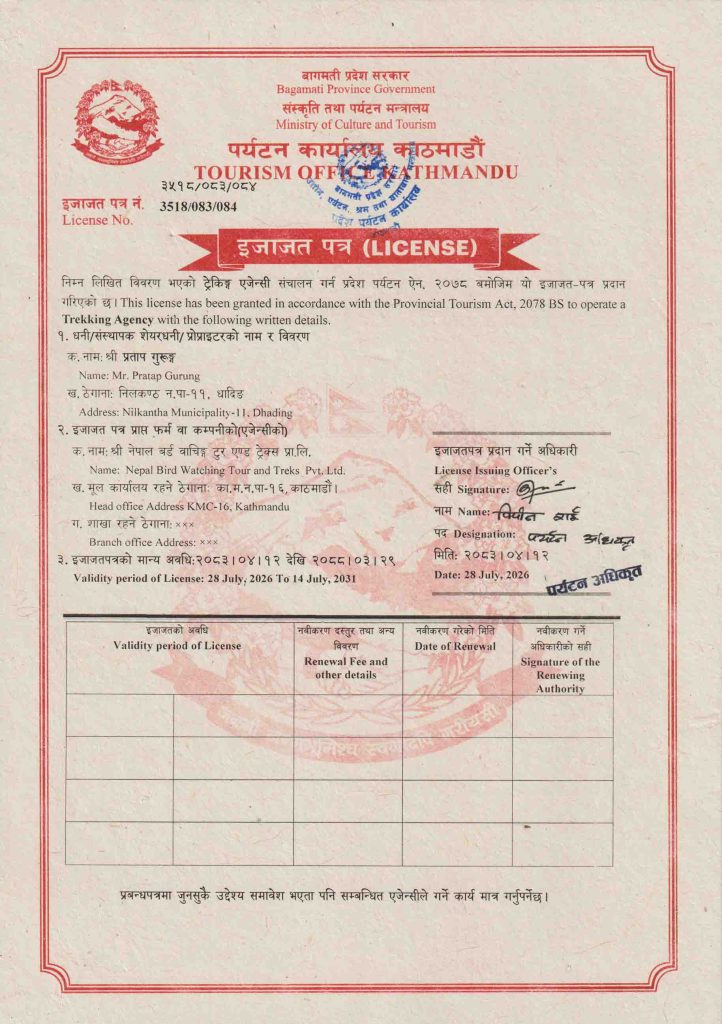 बागमती प्रदेश सरकार
Bagamati Province Government
संस्कृति तथा पर्यटन मन्त्रालय
Ministry of Culture and Tourism
पर्यटन कार्यालय काठमाडौं
TOURISM OFFICE KATHMANDU
३५१८/०८३/०८४
इजाजत पत्र नं. 3518/083/084
License No.
इजाजत पत्र (LICENSE)
निम्न लिखित विवरण भएको ट्रेकिङ्ग एजेन्सी संचालन गर्न प्रदेश पर्यटन ऐन, २०७८ बमोजिम यो इजाजत-पत्र प्रदान
गरिएको छ। This license has been granted in accordance with the Provincial Tourism Act, 2078 BS to operate a
Trekking Agency with the following written details.
१. धनी/संस्थापक शेयरधनी/ प्रोप्राइटरको नाम र विवरण
क. नाम: श्री प्रताप गुरूङ्ग
Name: Mr. Pratap Gurung
ख. ठेगाना: निलकण्ठ न.पा-११, धादिङ
Address: Nilkantha Municipality-11, Dhading
२. इजाजत पत्र प्राप्त फर्म वा कम्पनीको(एजेन्सीको)
क. नाम: श्री नेपाल बर्ड वाचिङ्ग टुर एण्ड ट्रेक्स प्रा.लि.
Name: Nepal Bird Watching Tour and Treks Pvt. Ltd.
ख. मूल कार्यालय रहने ठेगाना: का.म.न.पा-१६, काठमाडौं।
Head office Address KMC-16, Kathmandu
ग. शाखा रहने ठेगाना: ×××
Branch office Address: ×××
३. इजाजतपत्रको मान्य अवधि:२०८३।०४।१२ देखि २०८८।०३।२९
Validity period of License: 28 July, 2026 To 14 July, 2031
इजाजतपत्र प्रदान गर्ने अधिकारी
License Issuing Officer's
सही Signature:
नाम Name: विपीन राई
पद Designation: पर्यटन अधिकृत
मिति: २०८३।०४।१२
Date: 28 July, 2026
पर्यटन अधिकृत
इजाजतको अवधि
Validity period of License
नवीकरण दस्तुर तथा अन्य
विवरण
Renewal Fee and
other details
नवीकरण गरेको मिति
Date of Renewal
नवीकरण गर्ने
अधिकारीको सही
Signature of the
Renewing
Authority
प्रबन्धपत्रमा जुनसुकै उद्देश्य समावेश भएता पनि सम्बन्धित एजेन्सीले गर्ने कार्य मात्र गर्नुपर्नेछ।